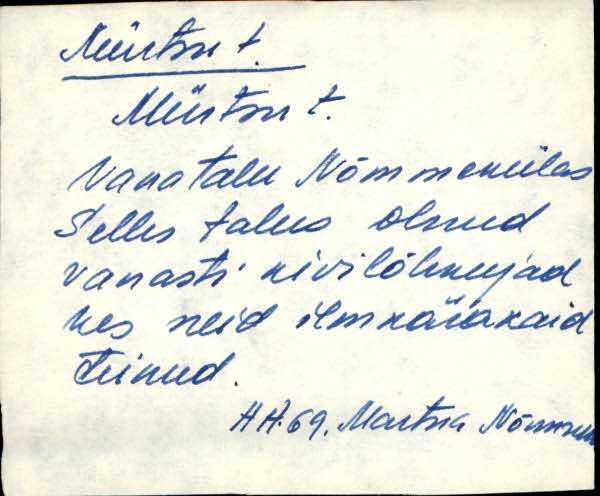 Müürtsu t.
Müürtsu t.
Vana talu Nõmmekülas
Selles talus olnud
vanasti kivilõhkujad
kes neid ilmkäiakaid
teinud.
H H. 69. Martna Nõmmek